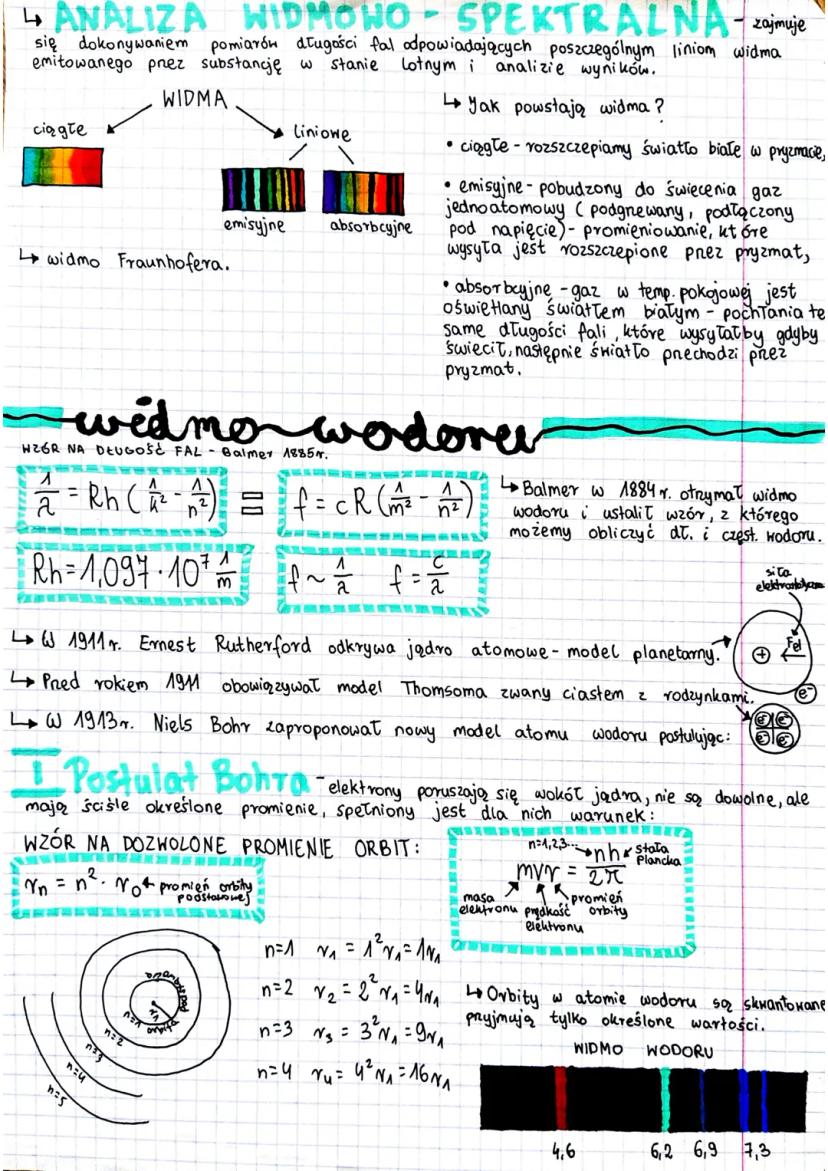 ↳ ANALIZA WIDMOWO - SPEKTRALNA - zajmuje
się dokonywaniem pomiarów długości fal odpowiadających poszczególnym liniom widma
emitowanego przez substancję w stanie lotnym i analizie wyników.
WIDMA
ciągłe
liniowe
emisyjne
absorbcyjne
↳ widmo Fraunhofera.
↳ Jak powstają widma?
• ciągłe - rozszczepiamy światło białe w pryzmacie,
• emisyjne - pobudzony do świecenia gaz
jednoatomowy (podgrzewany, podłączony
pod napięcie) - promieniowanie, które
wysyła jest rozszczepione przez pryzmat,
• absorbcyjne - gaz w temp. pokojowej jest
oświetlany światłem białym - pochłania te
same długości fali, które wysyłałby gdyby
świecił, następnie światło przechodzi przez
pryzmat.
widmo wodoru
WZÓR NA DŁUGOŚĆ FAL - Balmer 1885r.
1/λ = Rh (1/k² - 1/n²) ≡ f = cR (1/m² - 1/n²)
Rh = 1,097 · 10⁷ 1/m
f ~ 1/λ f = c/λ
↳ Balmer w 1884r. otrzymał widmo
wodoru i ustalił wzór, z którego
możemy obliczyć dł. i częst. wodoru.
siła
↳ W 1911r. Ernest Rutherford odkrywa jądro atomowe - model planetarny.
+ Fel e⁻
↳ Przed rokiem 1911 obowiązywał model Thomsoma zwany ciastem z rodzynkami.
↳ W 1913r. Niels Bohr zaproponował nowy model atomu wodoru postulując:
e⁻ e⁻
e⁻ e⁻
I Postulat Bohra - elektrony poruszają się wokół jądra, nie są dowolne, ale
mają ściśle określone promienie, spełniony jest dla nich warunek:
WZÓR NA DOZWOLONE PROMIENIE ORBIT:
rn = n² · r₀ ← promień orbity
podstawowej
n=1,2,3...
mvr = nh/2π
stała
Plancka
masa
elektronu
prędkość
elektronu
promień
orbity
n=2
n=3
n=4
n=5
n=1 r₁ = 1²r₁ = 1r₁
n=2 r₂ = 2²r₁ = 4r₁
n=3 r₃ = 3²r₁ = 9r₁
n=4 r₄ = 4²r₁ = 16r₁
↳ Orbity w atomie wodoru są skwantowane
przyjmują tylko określone wartości.
WIDMO WODORU
4,6 6,2 6,9 7,3